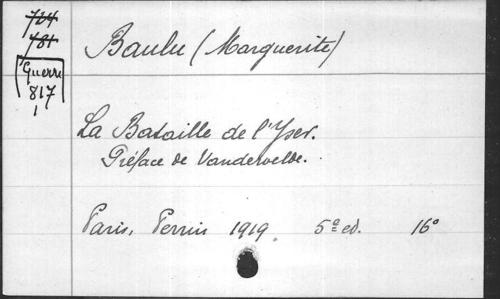 764
781
Guerre
817
1
Baulu (Marguerite)
La Bataille de l'Yser.
Préface de Vandervelde.
Paris, Perrin 1919. 5e ed. 16°